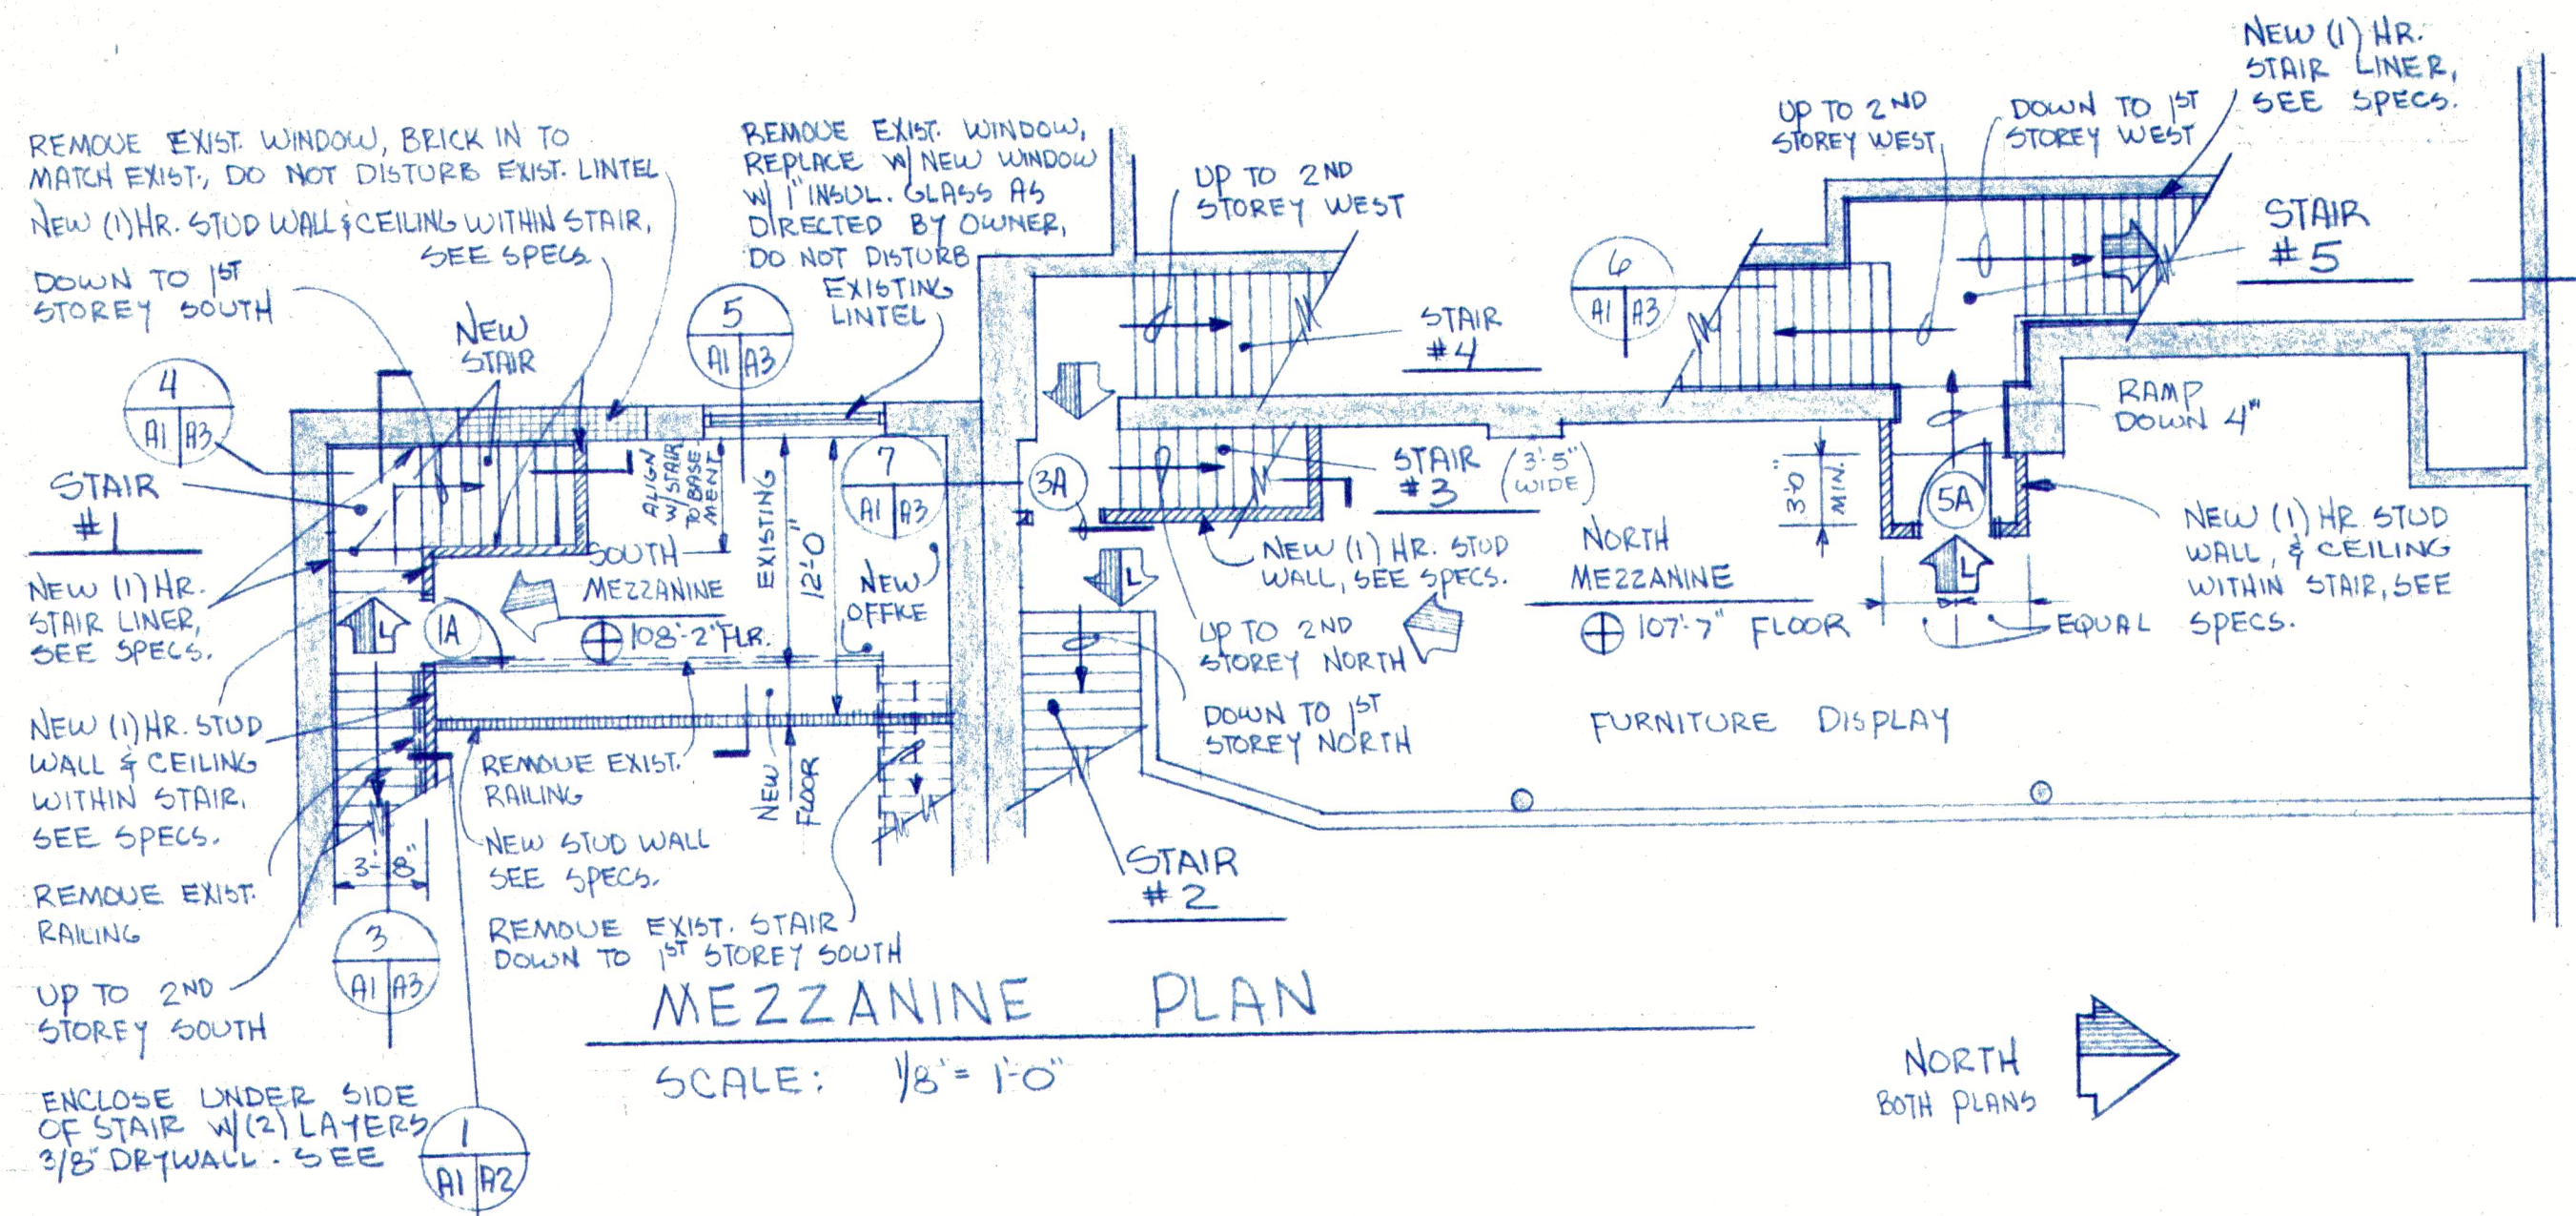 REMOVE EXIST. WINDOW, BRICK IN TO
MATCH EXIST., DO NOT DISTURB EXIST. LINTEL
NEW (1) HR. STUD WALL & CEILING WITHIN STAIR,
SEE SPECS.
DOWN TO 1ST
STOREY SOUTH
NEW
STAIR
4
A1 A3
STAIR
#1
NEW (1) HR.
STAIR LINER,
SEE SPECS.
NEW (1) HR. STUD
WALL & CEILING
WITHIN STAIR,
SEE SPECS.
REMOVE EXIST.
RAILING
UP TO 2ND
STOREY SOUTH
ENCLOSE UNDER SIDE
OF STAIR W/(2) LAYERS
3/8" DRYWALL. SEE
3'-8"
3
A1 A3
1
A1 A2
L
1A
REMOVE EXIST. WINDOW,
REPLACE W/ NEW WINDOW
W/ 1" INSUL. GLASS AS
DIRECTED BY OWNER,
DO NOT DISTURB
EXISTING
LINTEL
5
A1 A3
ALIGN
W/ STAIR
TO BASE-
MENT
EXISTING
12'-0"
SOUTH
MEZZANINE
108'-2" FLR.
NEW
OFFICE
REMOVE EXIST.
RAILING
NEW
FLOOR
NEW STUD WALL
SEE SPECS.
REMOVE EXIST. STAIR
DOWN TO 1ST STOREY SOUTH
7
A1 A3
3A
UP TO 2ND
STOREY WEST
STAIR
#4
STAIR
#3
(3'-5"
WIDE)
NEW (1) HR. STUD
WALL, SEE SPECS.
L
UP TO 2ND
STOREY NORTH
DOWN TO 1ST
STOREY NORTH
STAIR
#2
6
A1 A3
UP TO 2ND
STOREY WEST
DOWN TO 1ST
STOREY WEST
NEW (1) HR.
STAIR LINER,
SEE SPECS.
STAIR
#5
RAMP
DOWN 4"
3'-0"
MIN.
5A
L
NORTH
MEZZANINE
107'-7" FLOOR
NEW (1) HR. STUD
WALL, & CEILING
WITHIN STAIR, SEE
SPECS.
EQUAL
FURNITURE DISPLAY
MEZZANINE PLAN
SCALE: 1/8" = 1'-0"
NORTH
BOTH PLANS